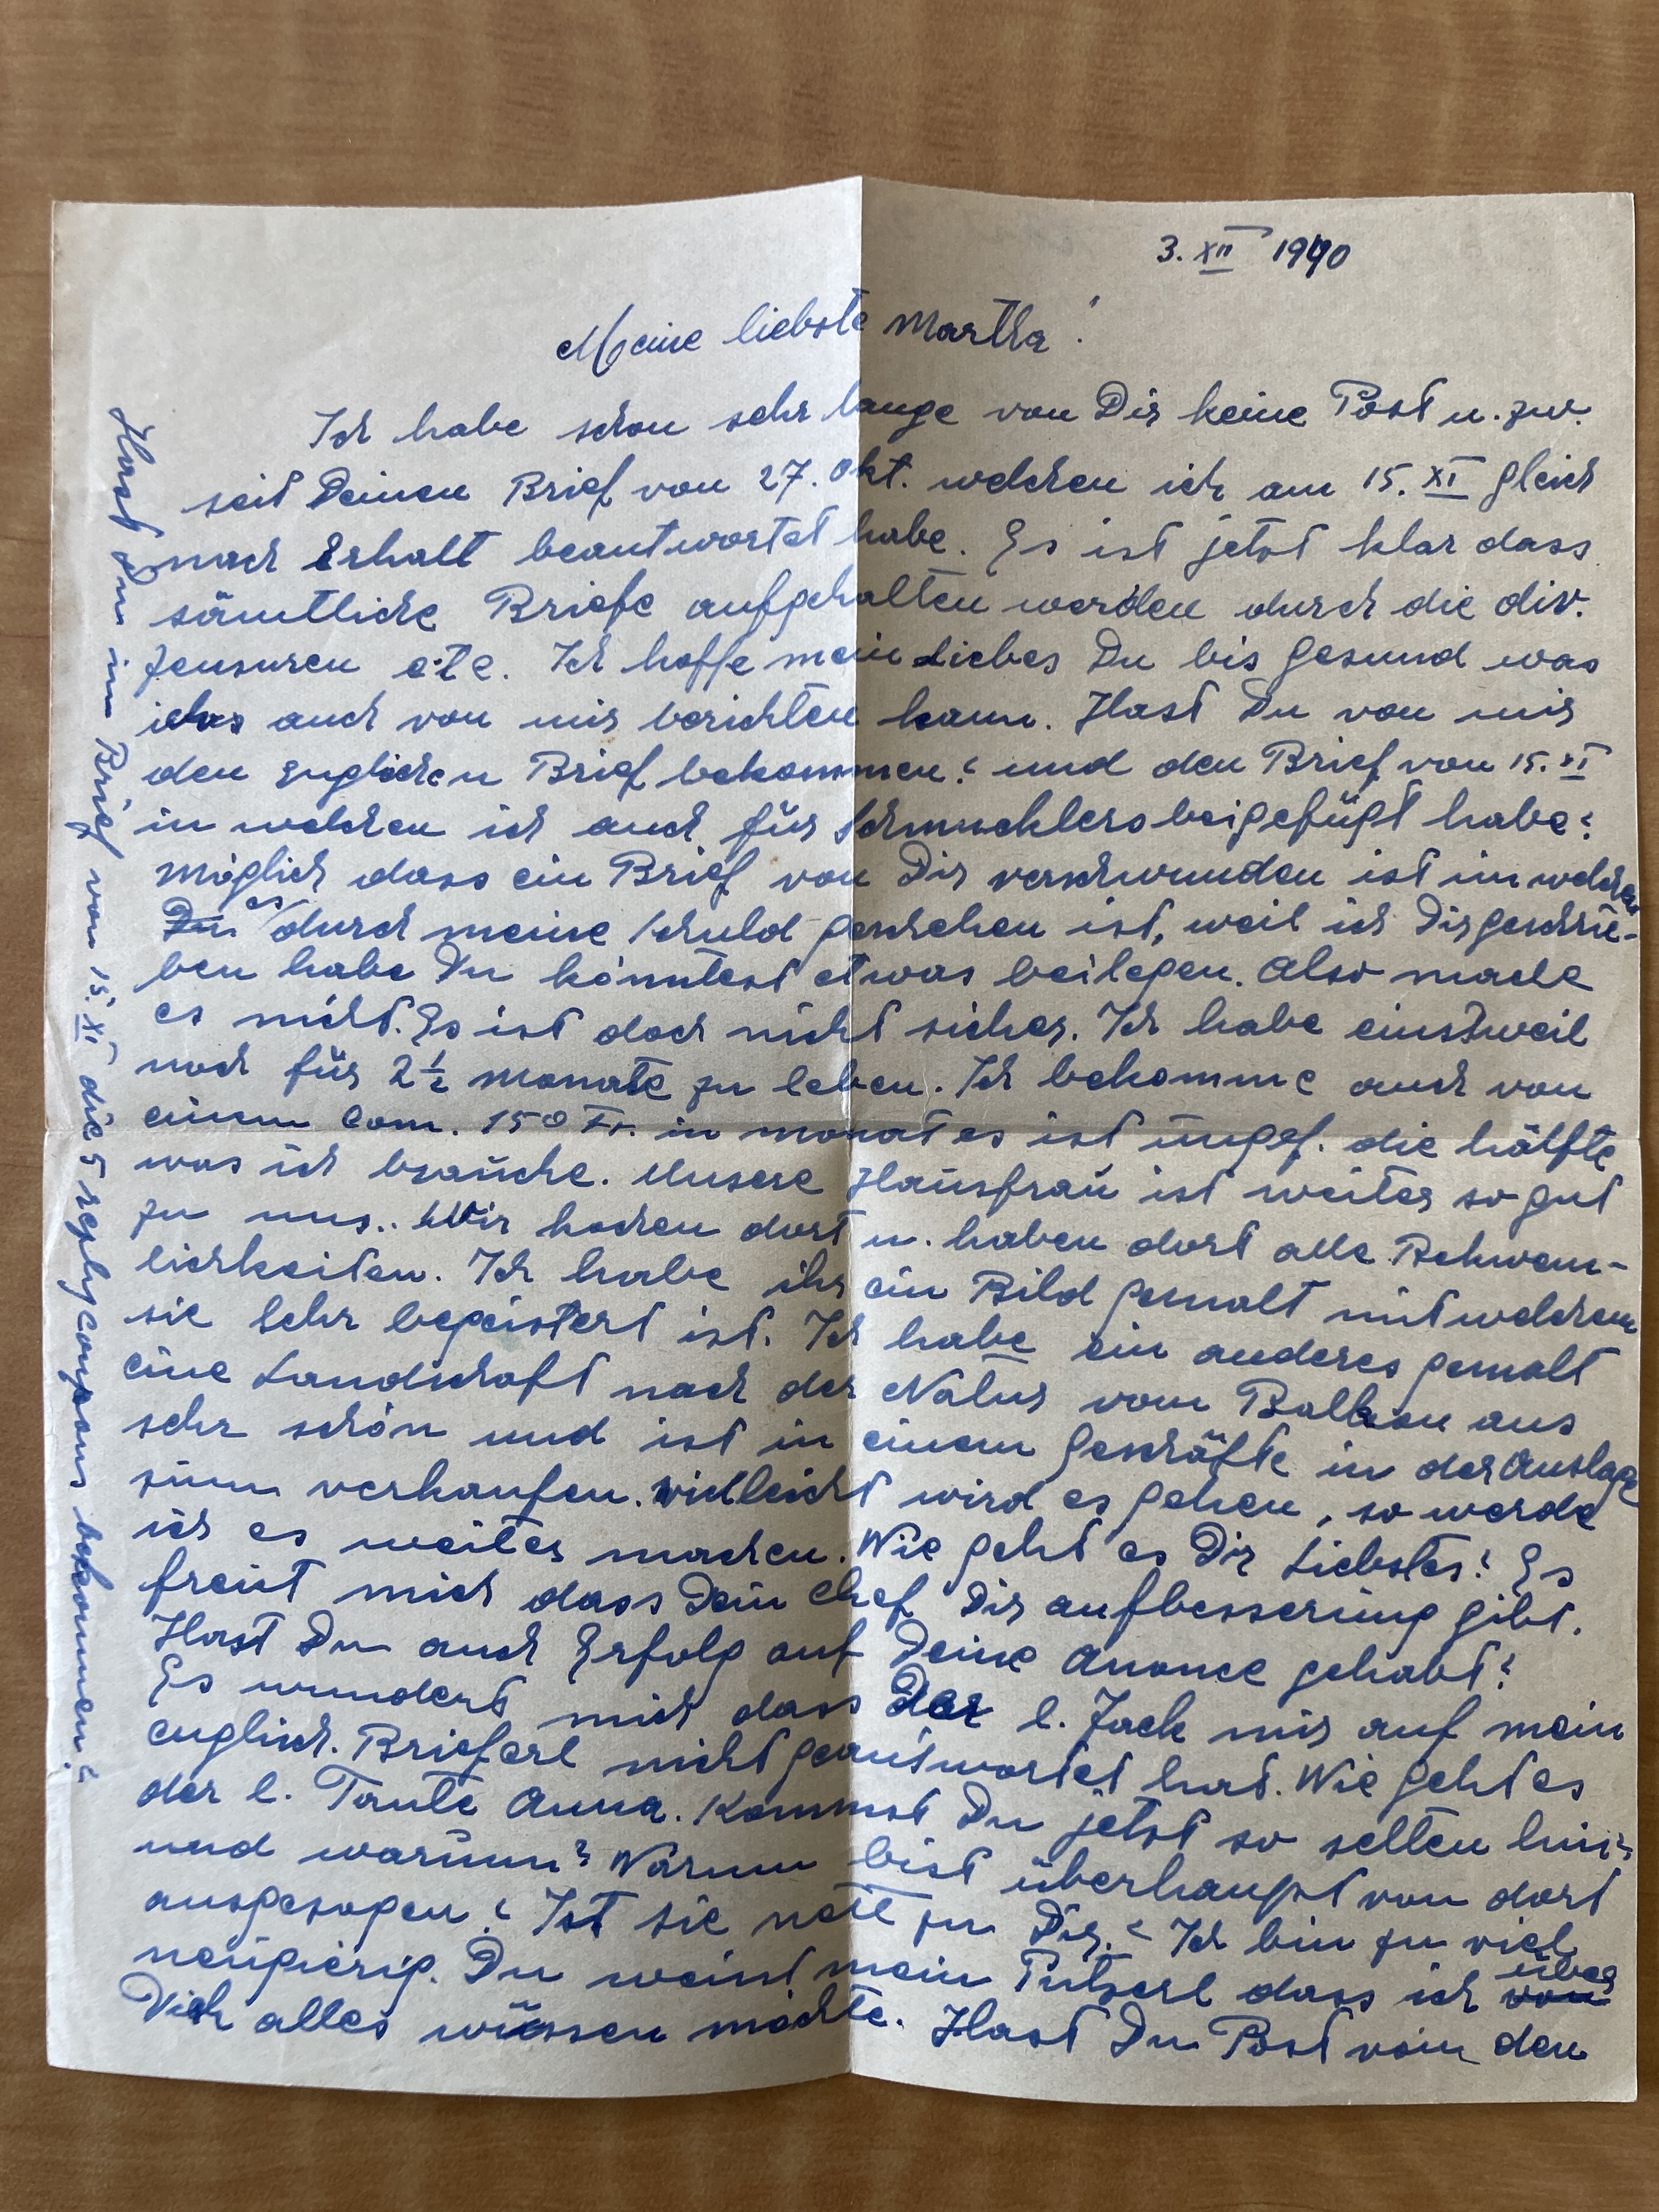 3. XII 1940
Meine liebste Martha!
Ich habe schon sehr lange von Dir keine Post u. zw.
seit Deinen Brief von 27. Okt. welchen ich am 15. XI gleich
nach Erhalt beantwortet habe. Es ist jetzt klar dass
sämtliche Briefe aufgehalten werden durch die div.
Zensuren etc. Ich hoffe mein Liebes Du bis gesund was
ich auch von mir berichten kann. Hast Du von mir
den Englichen Brief bekommen? und den Brief von 15. XI
in welchen ich auch für Schmucklers beigefügt habe?
Möglich dass ein Brief von Dir verschwunden ist in welchen
es durch meine Schuld geschehen ist, weil ich Dir geschrie-
ben habe Du könntest etwas beilegen. Also mache
es nicht. Es ist doch nicht sicher. Ich habe einstweil
noch für 2½ Monate zu leben. Ich bekomme auch von
einem Com. 150 Fr. in monat es ist ungef. die hälfte
was ich brauche. Unsere Hausfrau ist weiter so gut
zu uns.. Wir kochen dort u. haben dort alle Behwem-
lichkeiten. Ich habe ihr ein Bild gemalt mit welchem
sie sehr begeistert ist. Ich habe ein anderes gemalt
eine Landschaft nach der Natur vom Balkon aus
sehr schön und ist in einem Geschäfte in der Auslage
zum verkaufen. Vielleicht wird es gehen, so werde
ich es weiter machen. Wie geht es Dir Liebstes? Es
freut mich dass Dein Chef Dir aufbesserung gibt.
Hast Du auch Erfolg auf Deine Anonce gehabt?
Es wundert mich dass Der l. Jack mir auf mein
englich. Brieferl nicht geantwortet hat. Wie geht es
der l. Tante Anna. Kommst Du jetzt so selten hin?
und warum? Warum bist überhaupt von dort
ausgezogen? Ist sie nett zu Dir? Ich bin zu viel
neugierig. Du weist mein Putzerl dass ich über
Dich alles wissen möchte. Hast Du Post von den
Hast Du im Brief von 15. XI die 5 reply coupons bekommen?